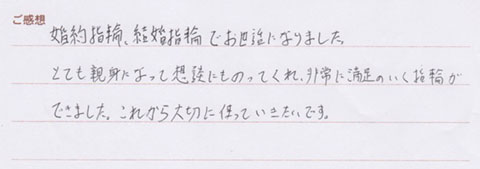 ご感想
婚約指輪、結婚指輪でお世話になりました。
とても親身になって想談にものってくれ、非常に満足のいく指輪が
できました。これから大切に使っていきたいです。